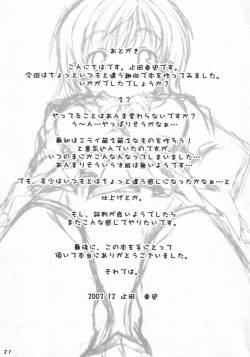 あとがき
こんにちはです。止田卓史です。
今回はちょっといつもと違う趣向で本を作ってみました。
いかがでしたでしょうか?
え?
やってることはあんま変わらないですか?
う〜ん…やっぱりそうかなぁ…
最初はエライ萌え萌えなものを作ろう!
と意気込んでいたのですが、
いつのまにかこんなんなってしまいました…
あんまりそういう才能は無いようです…
でも、多少はいつもとはちょっと違う感じになったかなぁ…と
仕上げとか。
もし、評判が良いようでしたら
またこんな感じでやりたいです。
最後に、この本を手にとって
頂いて本当にありがとうございました。
それでは。
2003 12 止田 卓史
21